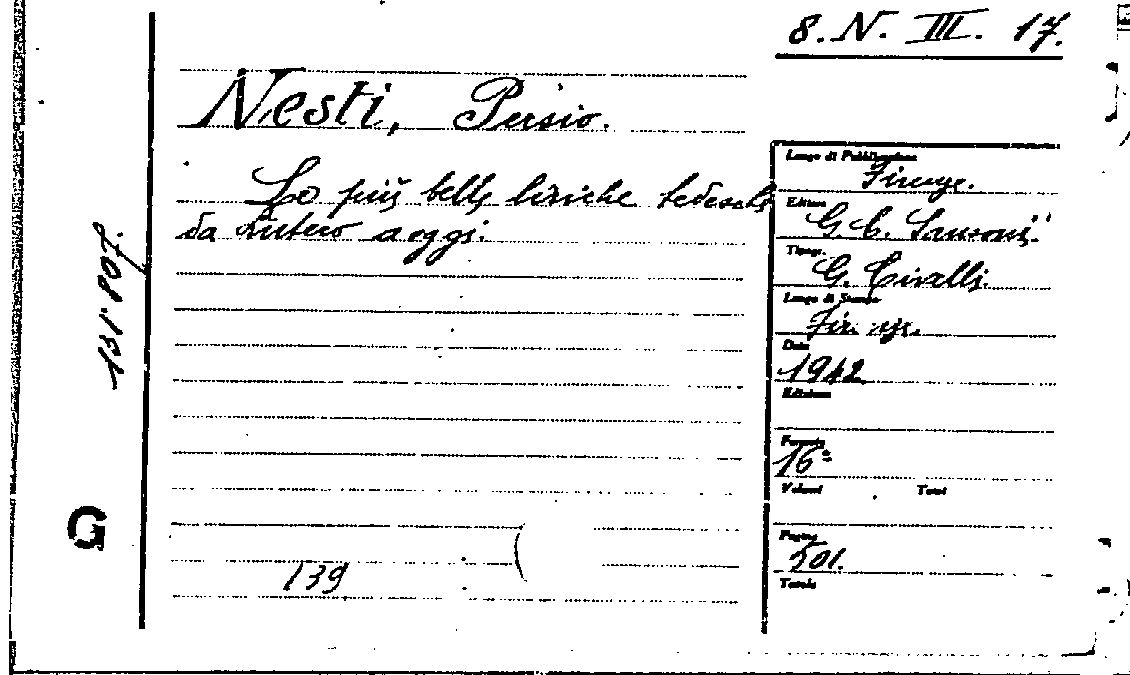 8. N. III. 17.
Nesti, Persio.
Le più belle liriche tedesche
da Lutero a oggi.
131.807.
G
139
Luogo di Pubblicazione
Firenze.
Editore
G. C. Sansoni.
Tipogr.
G. Civelli.
Luogo di Stampa
Firenze.
Data
1942
Edizione
Formato
16°
Volumi Tomi
Pagine
501.
Tavole